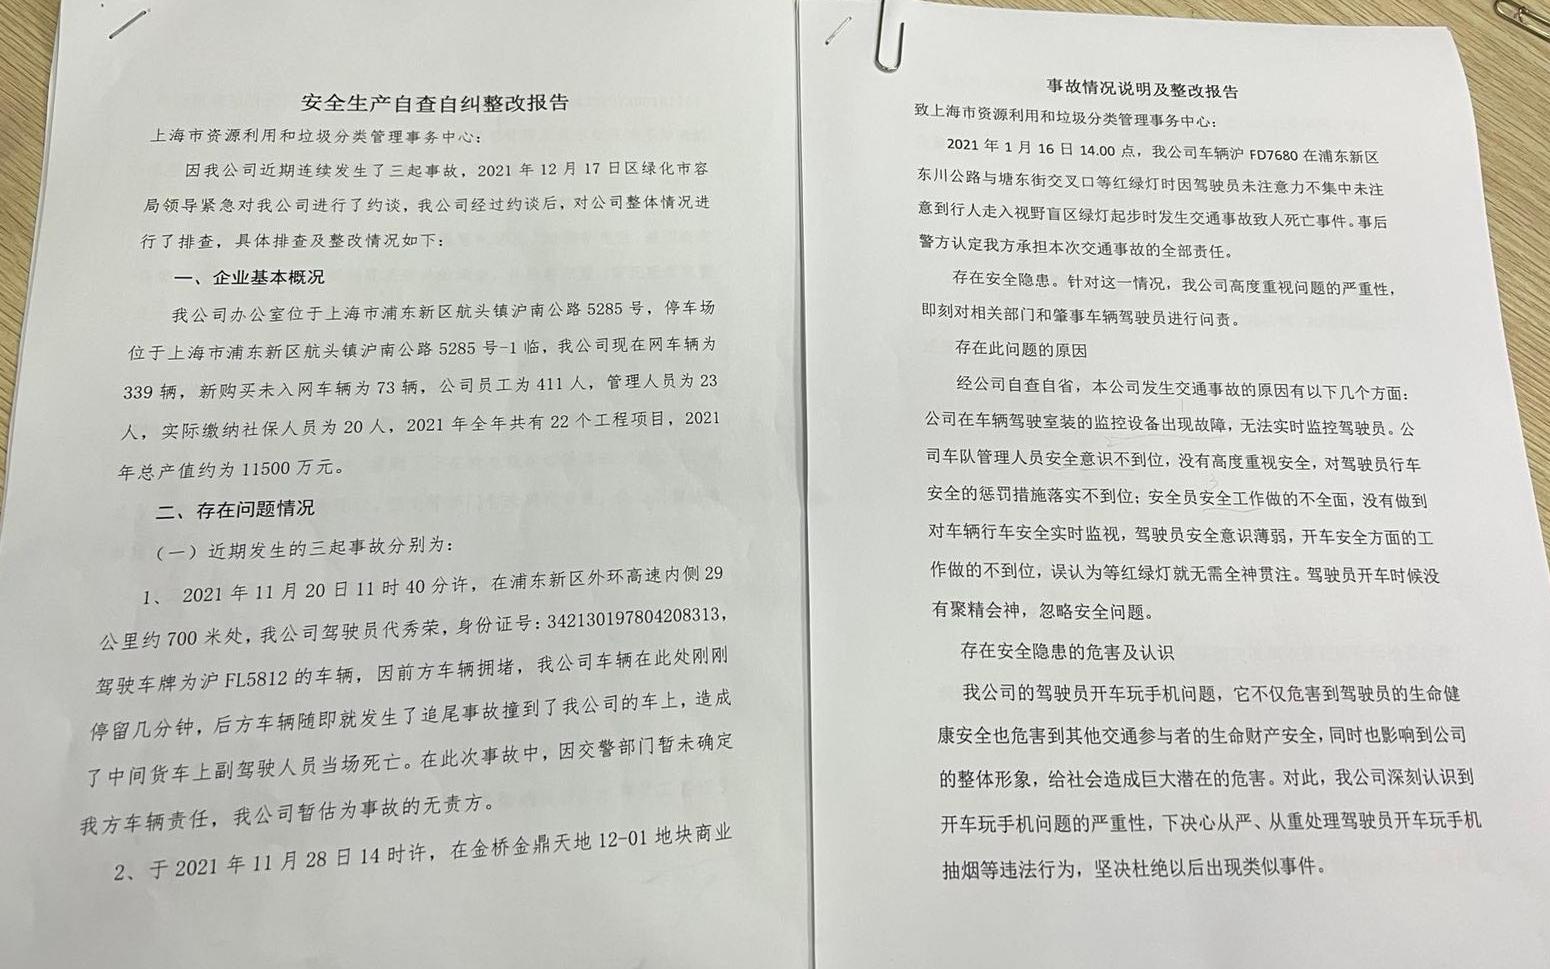 安全生产自查自纠整改报告
上海市资源利用和垃圾分类管理事务中心：
因我公司近期连续发生了三起事故，2021 年 12 月 17 日区绿化市容
局领导紧急对我公司进行了约谈，我公司经过约谈后，对公司整体情况进
行了排查，具体排查及整改情况如下：
一、企业基本概况
我公司办公室位于上海市浦东新区航头镇沪南公路 5285 号，停车场
位于上海市浦东新区航头镇沪南公路 5285 号-1 临，我公司现在网车辆为
339 辆，新购买未入网车辆为 73 辆，公司员工为 411 人，管理人员为 23
人，实际缴纳社保人员为 20 人，2021 年全年共有 22 个工程项目，2021
年总产值约为 11500 万元。
二、存在问题情况
（一）近期发生的三起事故分别为：
1、 2021 年 11 月 20 日 11 时 40 分许，在浦东新区外环高速内侧 29
公里约 700 米处，我公司驾驶员代秀荣，身份证号：342130197804208313，
驾驶车牌为沪 FL5812 的车辆，因前方车辆拥堵，我公司车辆在此处刚刚
停留几分钟，后方车辆随即就发生了追尾事故撞到了我公司的车上，造成
了中间货车上副驾驶人员当场死亡。在此次事故中，因交警部门暂未确定
我方车辆责任，我公司暂估为事故的无责方。
2、于 2021 年 11 月 28 日 14 时许，在金桥金鼎天地 12-01 地块商业
事故情况说明及整改报告
致上海市资源利用和垃圾分类管理事务中心：
2021 年 1 月 16 日 14.00 点，我公司车辆沪 FD7680 在浦东新区
东川公路与塘东街交叉口等红绿灯时因驾驶员未注意力不集中未注
意到行人走入视野盲区绿灯起步时发生交通事故致人死亡事件。事后
警方认定我方承担本次交通事故的全部责任。
存在安全隐患。针对这一情况，我公司高度重视问题的严重性，
即刻对相关部门和肇事车辆驾驶员进行问责。
存在此问题的原因
经公司自查自省，本公司发生交通事故的原因有以下几个方面：
公司在车辆驾驶室装的监控设备出现故障，无法实时监控驾驶员。公
司车队管理人员安全意识不到位，没有高度重视安全，对驾驶员行车
安全的惩罚措施落实不到位；安全员安全工作做的不全面，没有做到
对车辆行车安全实时监视，驾驶员安全意识薄弱，开车安全方面的工
作做的不到位，误认为等红绿灯就无需全神贯注。驾驶员开车时候没
有聚精会神，忽略安全问题。
存在安全隐患的危害及认识
我公司的驾驶员开车玩手机问题，它不仅危害到驾驶员的生命健
康安全也危害到其他交通参与者的生命财产安全，同时也影响到公司
的整体形象，给社会造成巨大潜在的危害。对此，我公司深刻认识到
开车玩手机问题的严重性，下决心从严、从重处理驾驶员开车玩手机
抽烟等违法行为，坚决杜绝以后出现类似事件。